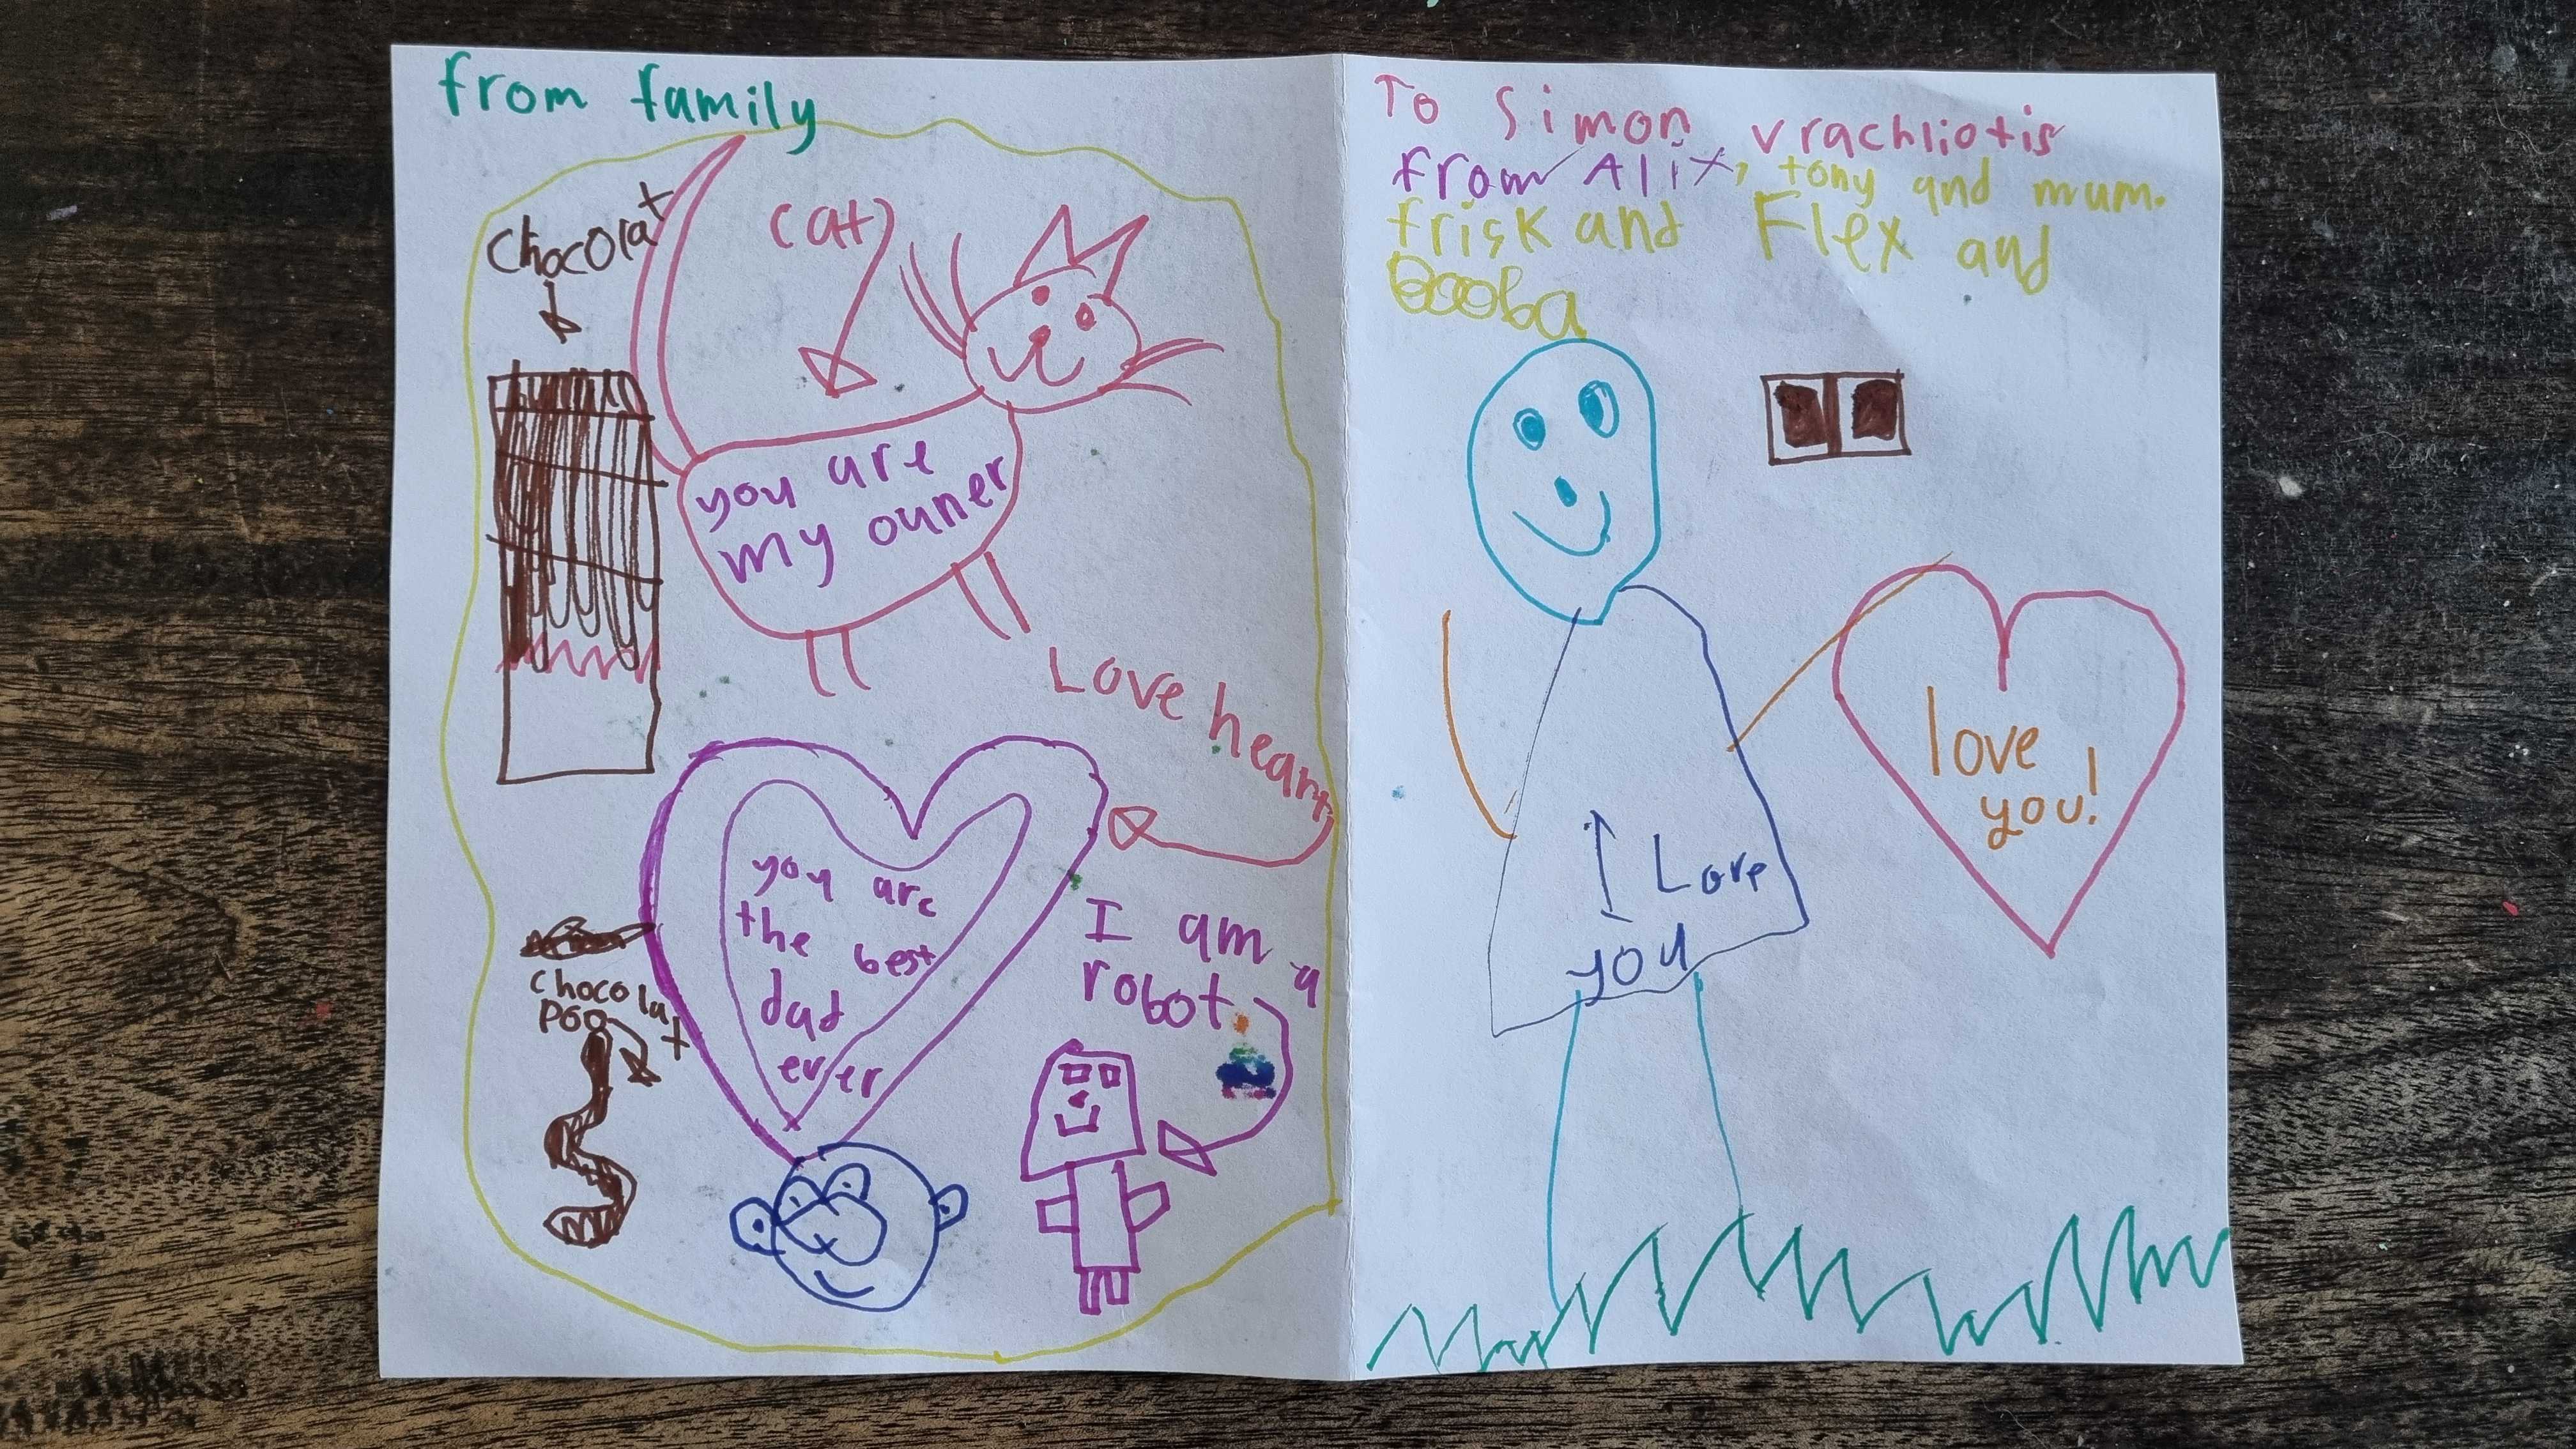 from family
chocolat
cat
you are
my ouner
Love heart
you are
the best
dad
ever
I am a
robot
chocolat
poo
To Simon vrachliotis
from Alix, tony and mum.
frisk and Flex and
Booba
love
you!
I Love
you